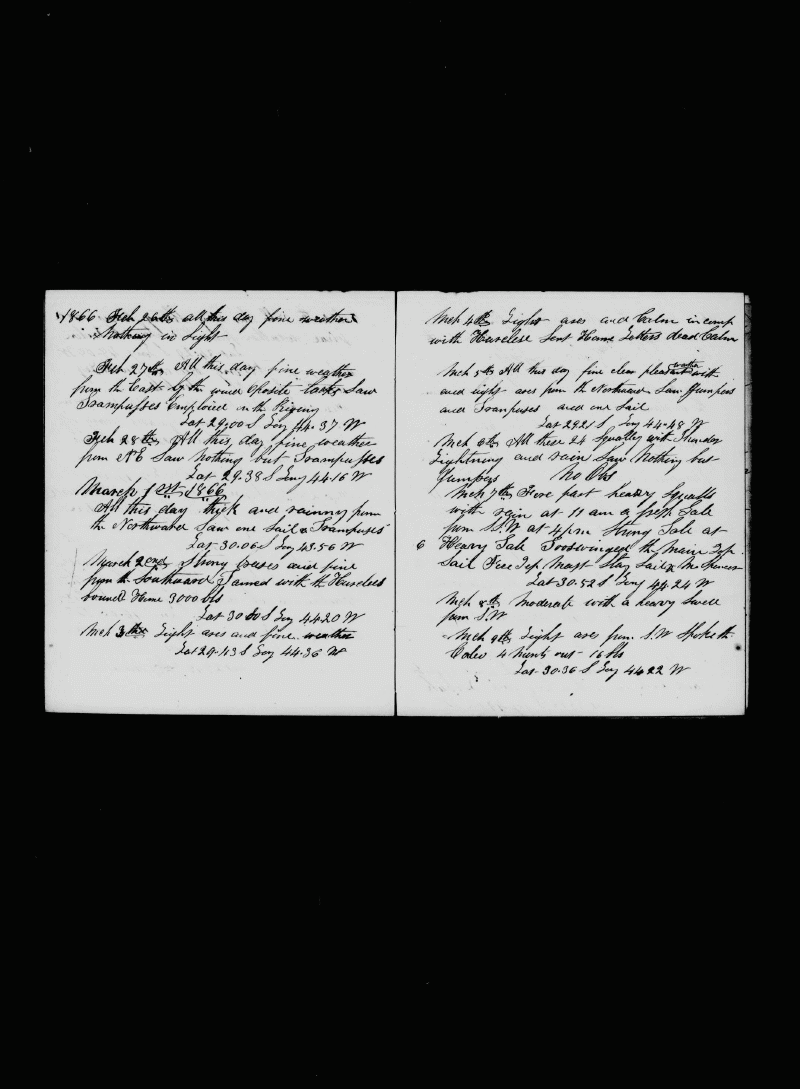 1866 Feb 26th all this day fine weather
Nothing in Sight
Feb 27th All this day fine weather
from the East by th wind oposite tacks Saw
Grampusses Employed in th Riging
Lat 29.00 S Long 44.37 W
Feb 28th All this day fine weather
from NE Saw nothing but Grampusses
Lat 29.38 S Long 44.16 W
March 1st 1866
All this day thick and rainny from
the Northward Saw one Sail & Grampuses
Lat 30.06 S Long 43.56 W
March 2end Strong breses and fine
from th Southward Gamed with th
bound Home 3000 bls
Lat 30 S Long 44.20 W
Mch 3 Light ares and fine weather
Lat 29.43 S Long 44.36 W
Mch 4th Light ares and Calm in comp
with Sent Home Letters dead Calm
Mch 5th All this day fine clear pleasant weather with
and light ares from th Northward Saw Jumpers
and Grampuses and one Sail
Lat 29.21 S Long 44.48 W
Mch 6th All these 24 Squally with Thunder
Lightning and rain Saw Nothing but
Jumpers No Obs
Mch 7th Fore part heavy Squalls
with rain at 11 am a fresh Gale
from S.W at 4 pm Strong Gale at
6 Heavy Gale th Main Top
Sail Fore Top Mast Stay Sail &
Lat 30.52 S Long 44.24 W
Mch 8th Moderate with a heavy Swell
from S.W
Mch 9th Light ares from S.W Spoke th
4 Munts out 16 bls
Lat 30.36 S Long 44.22 W